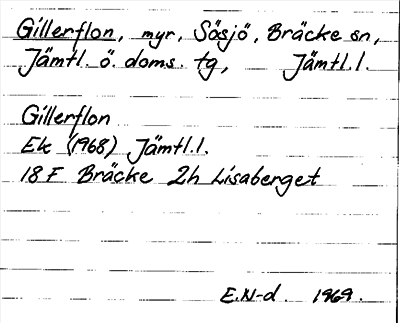 Gillerflon, myr, Sösjö, Bräcke sn,
Jämtl. ö. doms. tg, Jämtl.l.
Gillerflon
Ek (1968) Jämtl.l.
18 F Bräcke 2h Lisaberget
E.N-d. 1969.